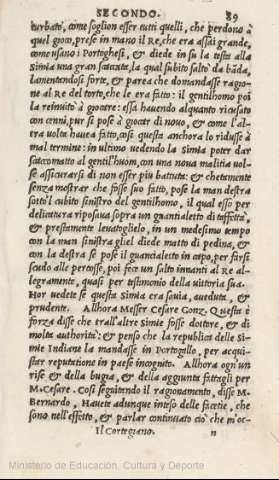 SECONDO. 89
turbato, come soglion esser tutti quelli, che perdono à
quel gioco, prese in mano il Re, che era assai grande,
come usano i Portoghesi, & diede in su la testa alla
Simia una gran scaccata, la qual subito saltò da bãda,
lamentandosi forte, & parea che domandasse ragio-
ne al Re del torto, che le era fatto: il gentilhomo poi
la reinuitò à giocare: essa hauendo alquanto ricusato
con cenni, pur si pose à giocar di nuouo, & come l'al-
tra uolta hauea fatto, così questa anchora lo ridusse à
mal termine: in ultimo uedendo la Simia poter dar
scaccomatto al gentilhuom, con una noua malitia uol-
se assicurarsi di non esser piu battuta: & chetamente
senza mostrar che fosse suo fatto, pose la man destra
sotto'l cubito sinistro del gentilhomo, il qual esso per
delicatura riposaua sopra un guancialetto di taffettà,
& prestamente leuatoglielo, in un medesimo tempo
con la man sinistra gliel diede matto di pedina, &
con la destra se pose il guancialetto in capo, per farsi
scudo alle percosse, poi fece un salto innanti al Re al-
legramente, quasi per testimonio della uittoria sua.
Hor uedete se questa Simia era sauia, aueduta, &
prudente. Allhora Messer Cesare Gonz. Questa è
forza disse che trall'altre Simie fosse dottore, & di
molta authorità: & penso che la republica delle Si-
mie Indiane la mandasse in Portogallo, per acqui-
star reputatione in paese incognito. Allhora ogn'un
rise & della bugia, & della aggiunta fattagli per
M. Cesare. Cosi seguitando il ragionamento, disse M.
Bernardo, Hauete adunque inteso delle facetie, che
sono nell'effetto, & parlar continuato ciò che m'oc-
Il Cortegiano. n
Ministerio de Educación, Cultura y Deporte